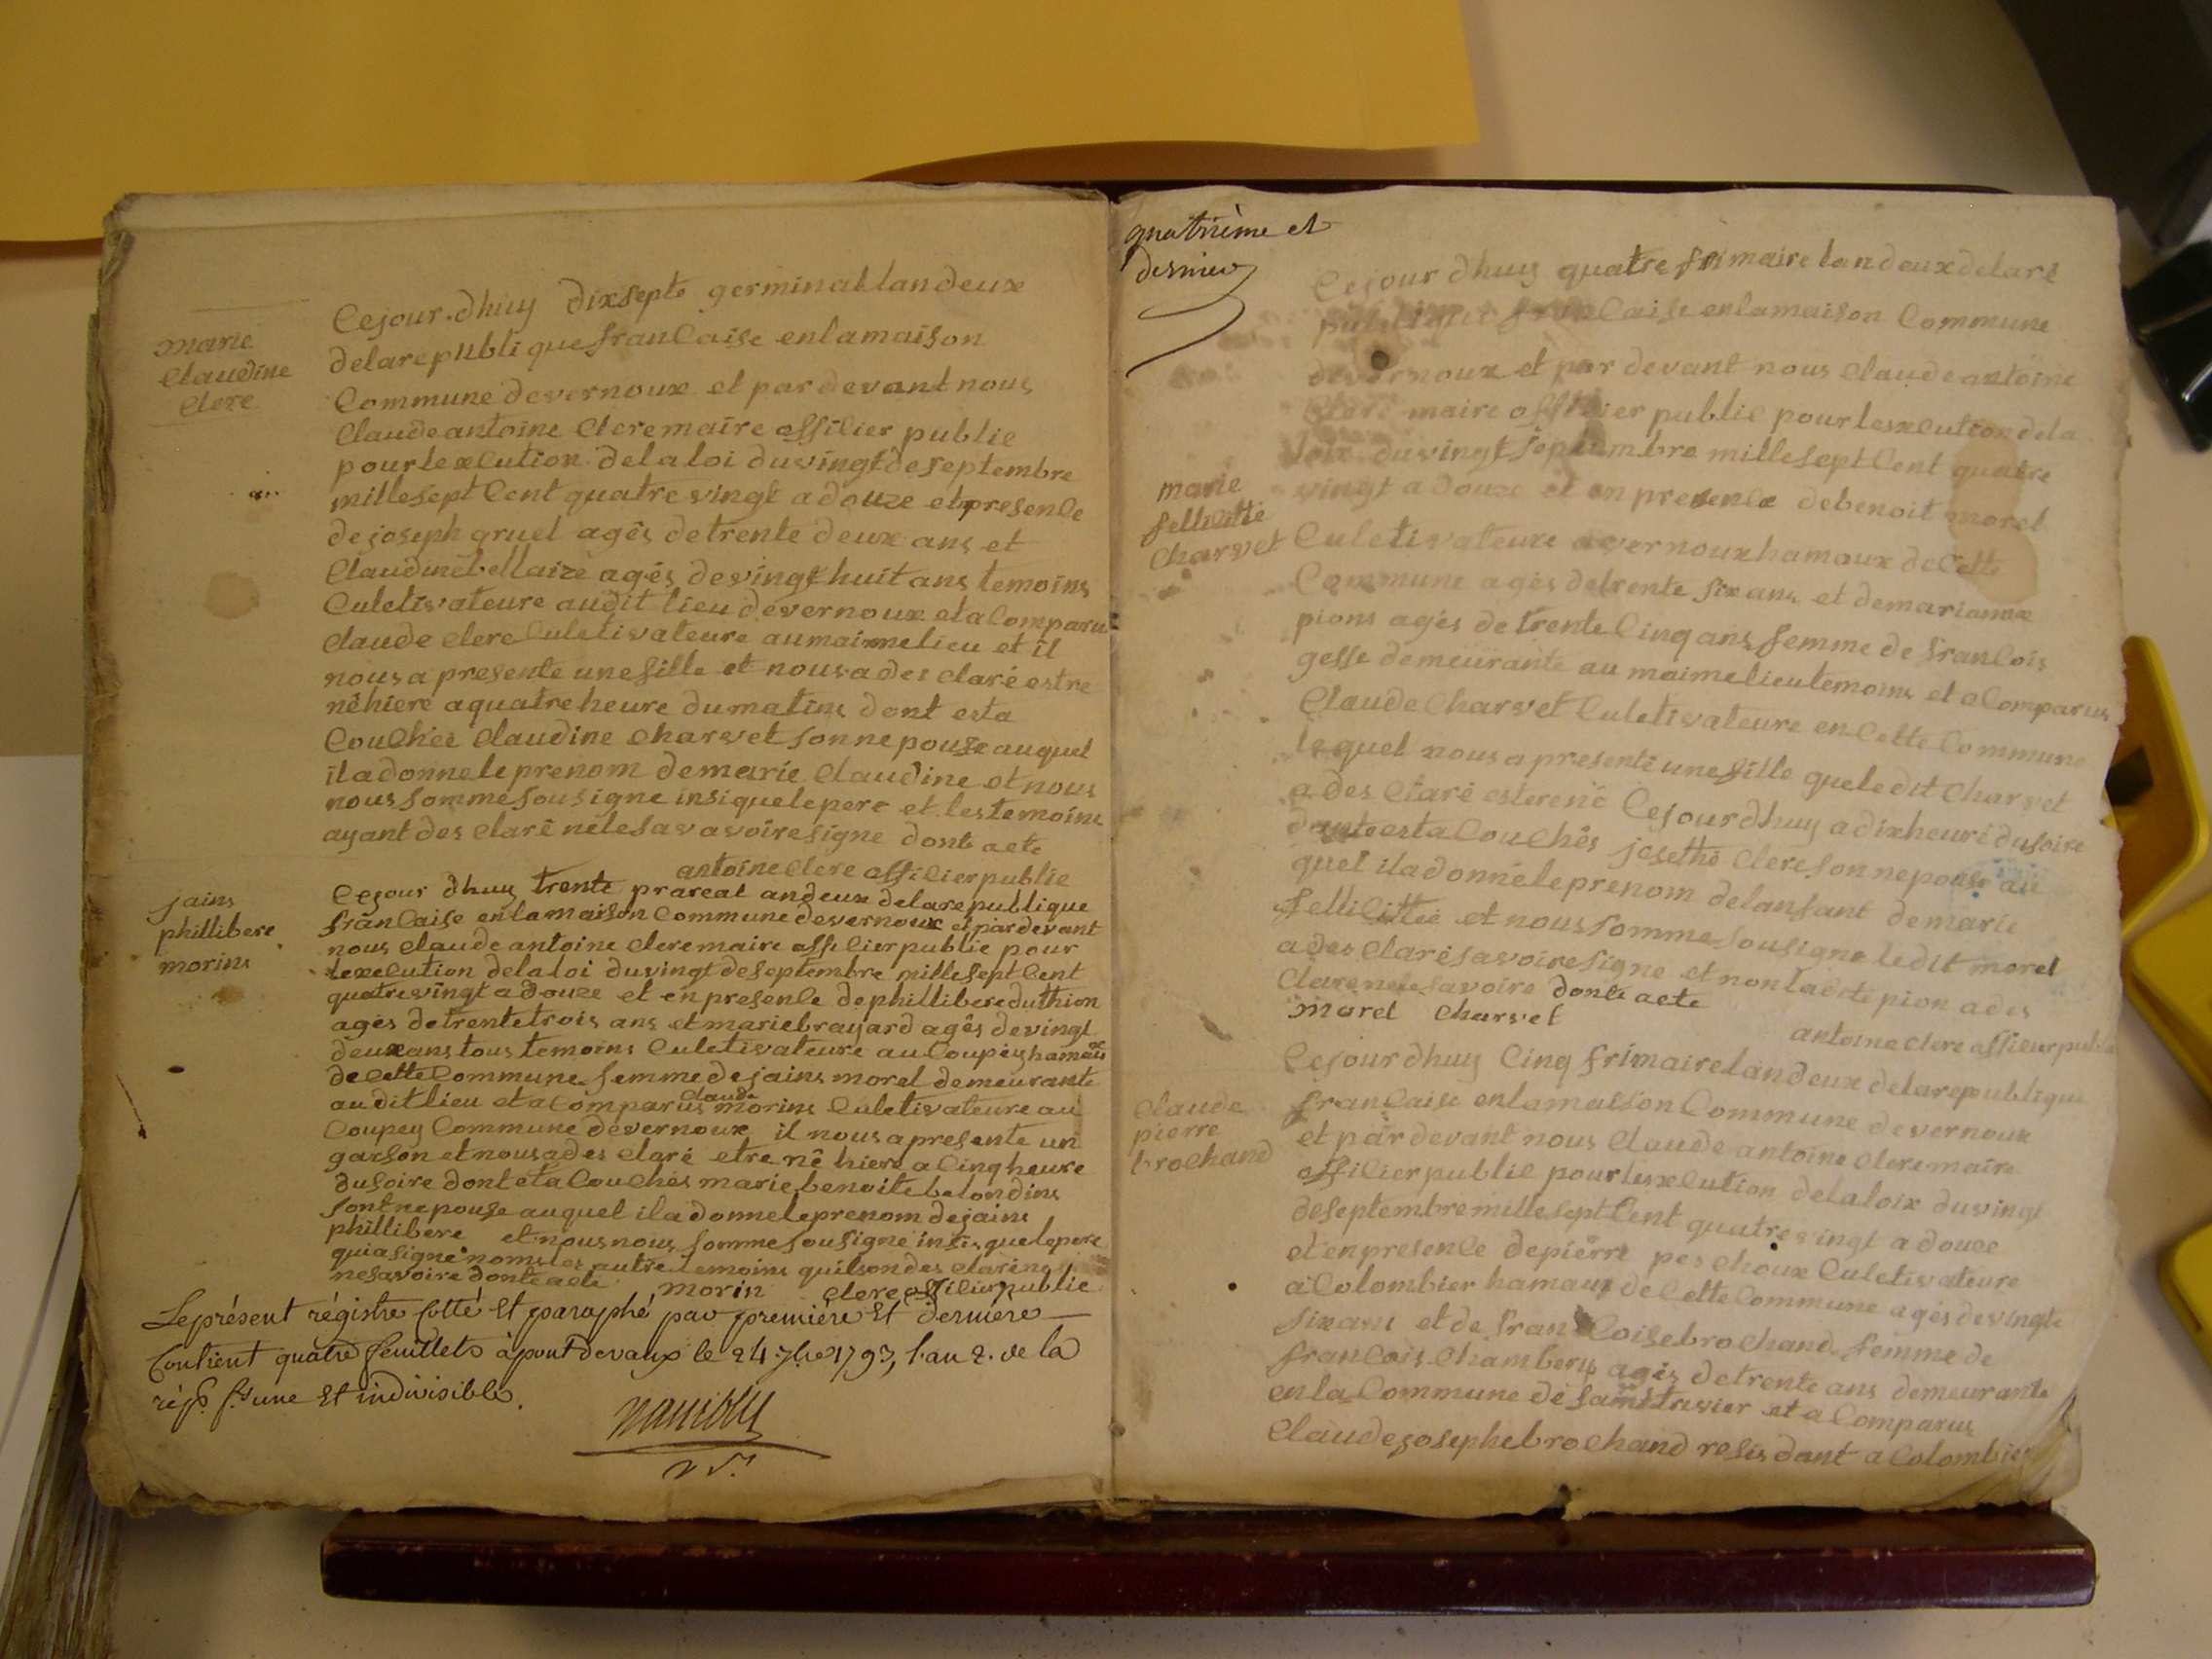 marie
claudine
clere
Cejour.dhuy dixsepte germinal landeux
delarepublique francaise enlamaison
Commune devernoux et par devant nous
Claude antoine clere maire officier public
pour lexecution de la loi duvingt deseptembre
mille sept Cent quatre vingt adouze et presence
de joseph gruel agés detrente deux ans et
Claudine bellaize agés devingt huit ans temoins
Culetivateure audit lieu devernoux et a Comparu
Claude clere Culetivateure aumaime lieu et il
nous a presente une fille et nous a des claré estre
né hiere a quatre heure dumatins dont esta
Couchée Claudine charvet sonnepouse auquel
il a donne le prenom demarie Claudine et nous
nous somme sousigne insi quele pere et les temoins
ayant des claré nele savavoire signe dont acte
antoine clere officier public
jains
phillibere
morins
Cejour dhuy trente prareal andeux delarepublique
francaise enlamaison Commune devernoux et pardevant
nous Claude antoine clere maire officier public pour
lexecution delaloi duvingt deseptembre mille sept Cent
quatrevingt adouze et en presence dephillibere duthion
agés detrentetrois ans et marie brayard agés devingt
deuxans tous temoins Culetivateure au Coupey hamaux
de cette Commune femme de jains morel demeurante
audit lieu et a Comparus claude morins Culetivateure au
Coupey Commune devernoux il nous a presente un
garson et nous a des claré etre né hiere a Cinq heure
dusoire dont eta Couchés marie benoite belondins
sonnepouse auquel il a donne le prenom dejains
phillibere et nous nous somme sousigne insi quelepere
qui a signe nom les autre temoins quilson des clarene
nesavoire donte acte morin clere officier public
Le présent régistre cotté et paraphé par première et dernière
Contient quatre feuillets à pont devaux le 24 7bre 1793, l'an 2. de la
rép. f.se une et indivisible.
quatrième et
dernier
Cejour dhuy quatre frimaire landeux delaré
publique francaise enlamaison Commune
devernoux et par devant nous Claude antoine
clere maire officier public pour lesxecution dela
loix duvingt septembre mille sept Cent quatre
vingt adouze et en presence debenoit morel
marie
fellicitté
Charvet
Culetivateure a vernoux hamoux de Cette
Commune agés detrente six ans et demarianne
pions agés de trente Cinq ans femme de francois
gesse demeurante au maime lieu temoins et a Comparus
Claude Charvet Culetivateure en Cette Commune
lequel nous a presenté une fille quele dit Charvet
a des claré estere né Cejourdhuy a dixheure dusoire
donte esta Couchés josethe clere sonnepouse au
quel il a donné le prenom delansant de marie
fellicittée et nous somme sousigne ledit morel
a des claré savoire signe et non ladite pion a des
clare nele savoire donte acte
morel Charvet
antoine clere officier public
Claude
pierre
brochand
Cejour dhuy Cinq frimaire landeux delarepublique
francaise enlamaison Commune devernoux
et par devant nous Claude antoine clere maire
officier public pour lesxecution delaloix duvingt
deseptembre mille sept Cent quatrevingt adouze
et enpresence depiérre peschoux Culetivateure
a Colombier hamaux de Cette Commune agés devingte
sixans et de francoise brochand femme de
francois Chambery agés detrente ans demeurante
enla Commune de saint trivier et a Comparus
Claude josephe brochand resisdant a Colombier